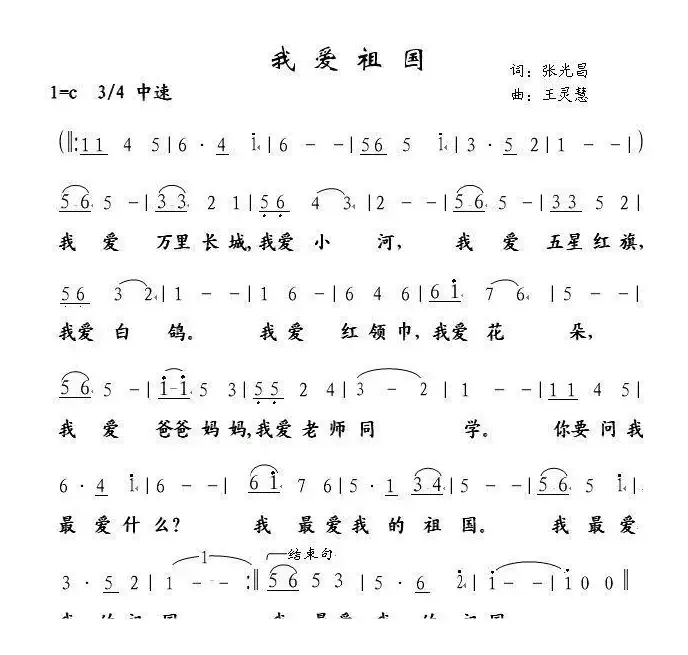 我爱祖国
词：张光昌
1=c 3/4 中速
曲：王灵慧
(‖: 1 1 4 5 | 6 · 4 1 | 6 - - | 5 6 5 1 | 3 · 5 2 | 1 - - | )
5 6 5 - | 3 3 2 1 | 5 6 4 3 | 2 - - | 5 6 5 - | 3 3 5 2 |
我 爱 万里长城,我爱小 河, 我 爱 五星红旗,
5 6 3 2 | 1 - - | 1 6 - | 6 4 6 | 6 1 7 6 | 5 - - |
我爱 白 鸽。 我 爱 红领巾,我爱花 朵,
5 6 5 - | 1 1 5 3 | 5 5 2 4 | 3 - 2 | 1 - - | 1 1 4 5 |
我 爱 爸爸妈妈,我爱老师同 学。 你要问我
6 · 4 1 | 6 - - | 6 1 7 6 | 5 · 1 3 4 | 5 - - | 5 6 5 1 |
最爱什么? 我 最爱我的祖国。 我最爱
1 结束句
3 · 5 2 | 1 - - :‖ 5 6 5 3 | 5 · 6 2 | 1 - - | 1 0 0 ‖